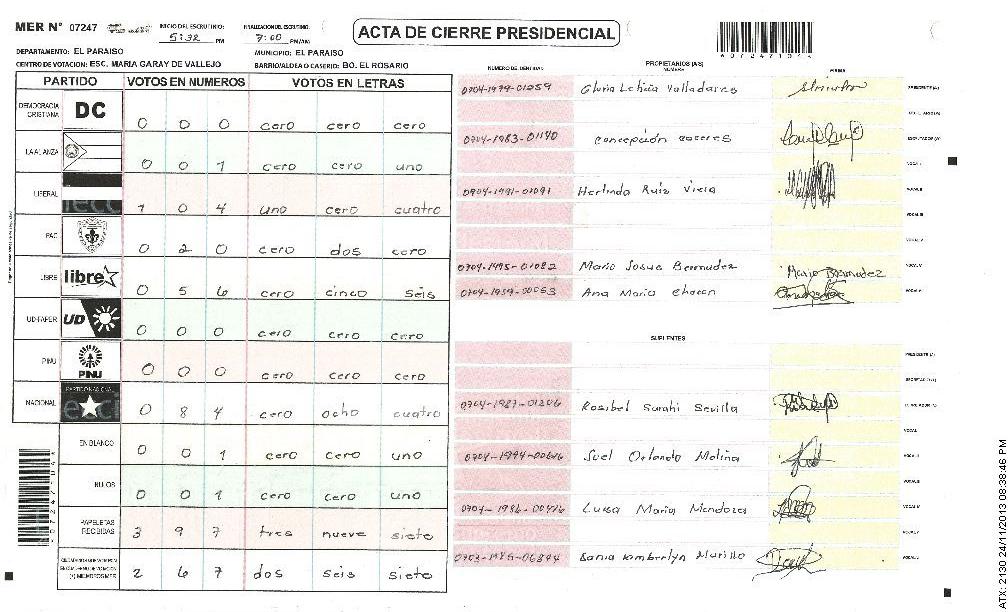 MER N° 07247 INICIO DEL ESCRUTINIO: 5:32 PM FINALIZACION DEL ESCRUTINIO: 7:00 PM/AM
ACTA DE CIERRE PRESIDENCIAL
DEPARTAMENTO: EL PARAISO MUNICIPIO: EL PARAISO
CENTRO DE VOTACION: ESC. MARIA GARAY DE VALLEJO BARRIO/ALDEA O CASERIO: BO. EL ROSARIO
PARTIDO VOTOS EN NUMEROS VOTOS EN LETRAS
DEMOCRACIA CRISTIANA DC 0 0 0 cero cero cero
LA ALIANZA 0 0 1 cero cero uno
LIBERAL 1 0 4 uno cero cuatro
PAC 0 2 0 cero dos cero
LIBRE libre 0 5 6 cero cinco seis
UD-FAPER UD 0 0 0 cero cero cero
PINU PINU 0 0 0 cero cero cero
NACIONAL PARTIDO NACIONAL 0 8 4 cero ocho cuatro
EN BLANCO 0 0 1 cero cero uno
NULOS 0 0 1 cero cero uno
PAPELETAS RECIBIDAS 3 9 7 tres nueve siete
2 6 7 dos seis siete
NUMERO DE IDENTIDAD PROPIETARIOS (AS) NOMBRE FIRMA
0704-1979-01259 Gloria Leticia Valladares PRESIDENTE (A)
0704-1983-01140 Concepción caceres
0704-1991-01091 Herlinda Ruiz Viera
0704-1995-01082 Mario Josue Bermudez Mario Bermudez
0704-1959-00053 Ana Maria chacon
SUPLENTES
PRESIDENTE (A)
SECRETARIO (A)
0704-1987-01206 Rosibel Sarahi Sevilla
0704-1994-00616 Suel Orlando Molina
0704-1986-00476 Luisa Maria Mendoza
0703-1985-06844 Sania kimberlyn Murillo
ATX: 2130 24/11/2013 08:38:46 PM